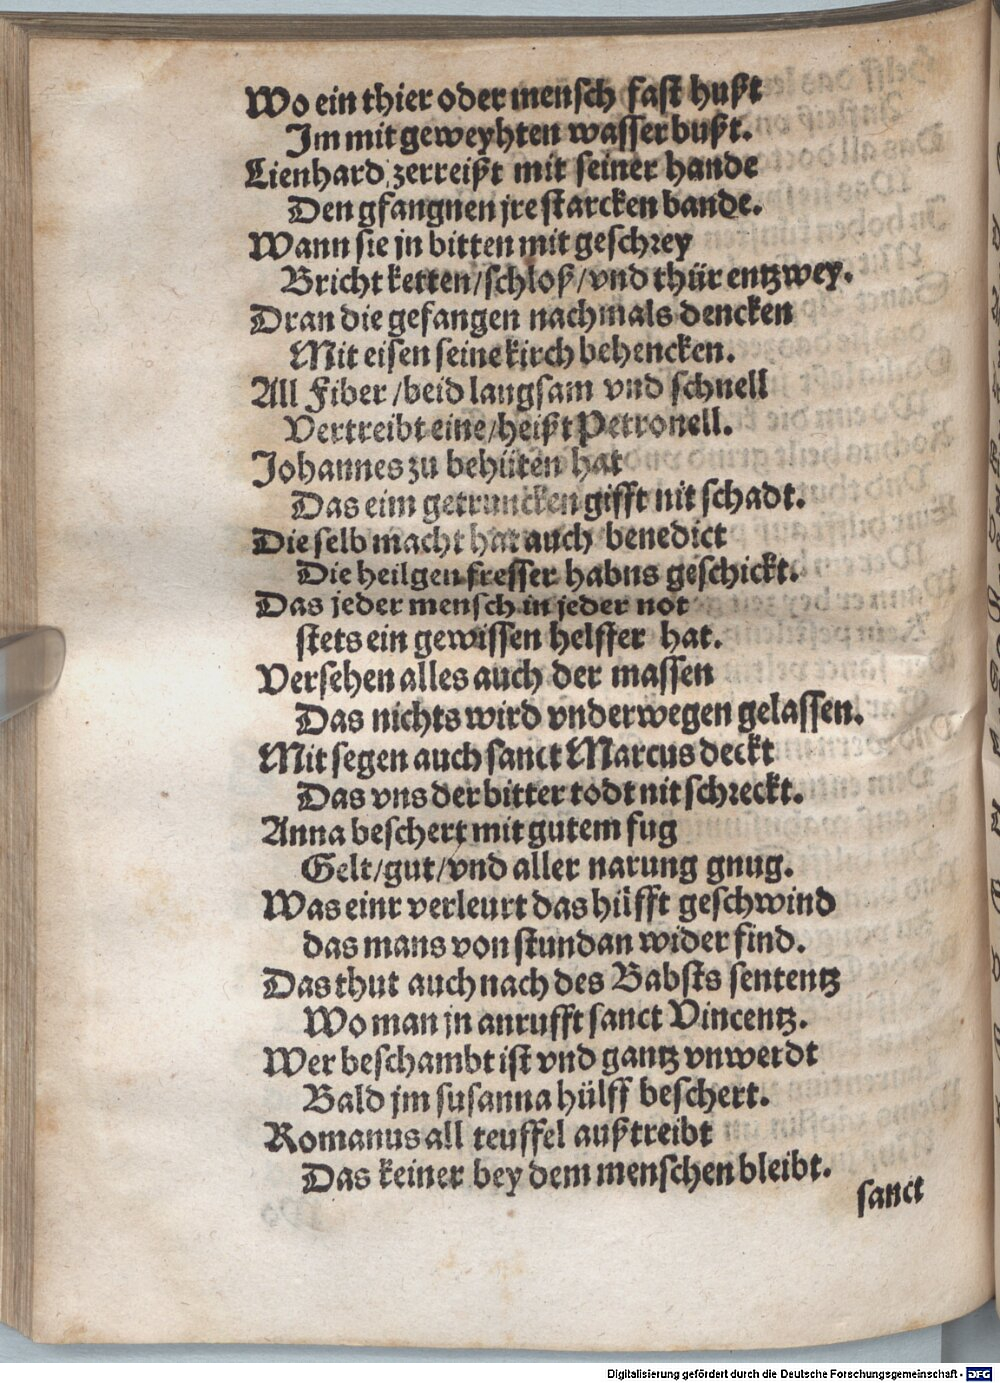 Wo ein thier oder mensch fast hußt
Im mit geweyhten wasser bußt.
Lienhard zerreißt mit seiner hande
Den gfangnen jre starcken bande.
Wann sie jn bitten mit geschrey
Bricht ketten/schloß/vnd thür entzwey.
Dran die gefangen nachmals dencken
Mit eisen seine kirch behencken.
All Fiber/beid langsam vnd schnell
Vertreibt eine/heißt Petronell.
Johannes zu behüten hat
Das eim getruncken gifft nit schadt.
Die selb macht hat auch benedict
Die heilgen fresser habns geschickt.
Das jeder mensch in jeder not
stets ein gewissen helffer hat.
Versehen alles auch der massen
Das nichts wird vnderwegen gelassen.
Mit segen auch sanct Marcus deckt
Das vns der bitter todt nit schreckt.
Anna beschert mit gutem fug
Gelt/gut/vnd aller narung gnug.
Was einr verleurt das hüfft geschwind
das mans von stundan wider find.
Das thut auch nach des Babsts sententz
Wo man jn anrufft sanct Vincentz.
Wer beschambt ist vnd gantz vnwerdt
Bald jm susanna hülff beschert.
Romanus all teuffel außtreibt
Das keiner bey dem menschen bleibt.
sanct
Digitalisierung gefördert durch die Deutsche Forschungsgemeinschaft - DFG